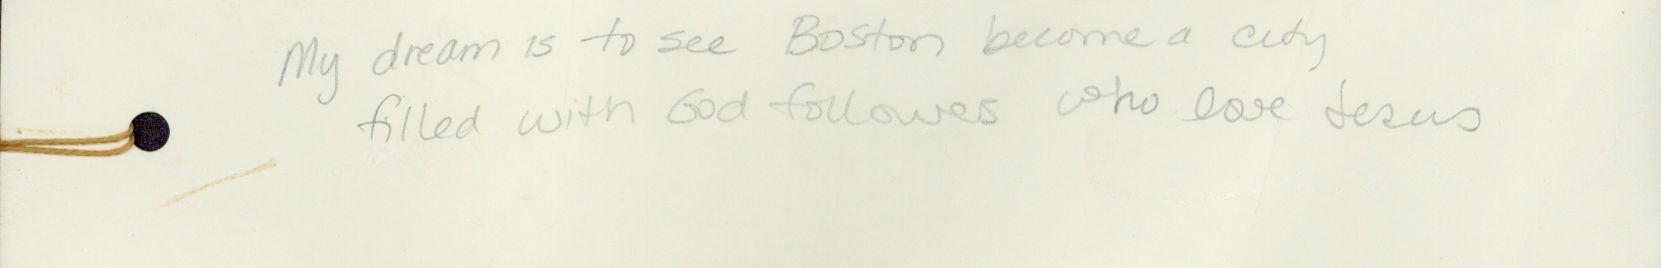 My dream is to see Boston become a city
filled with God followes who love Jesus